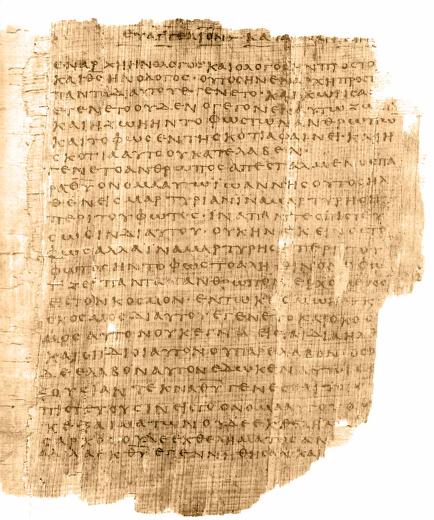 ΕΥΑΓΓΕΛΙΟΝ ΚΑΤΑ
ΕΝ ΑΡΧΗ ΗΝ Ο ΛΟΓΟΣ ΚΑΙ Ο ΛΟΓΟΣ ΗΝ ΠΡΟΣ ΤΟ
ΚΑΙ ΘΣ ΗΝ Ο ΛΟΓΟΣ · ΟΥΤΟΣ ΗΝ ΕΝ ΑΡΧΗ ΠΡΟΣ Τ
ΠΑΝΤΑ ΔΙ ΑΥΤΟΥ ΕΓΕΝΕΤΟ · ΚΑΙ ΧΩΡΙΣ Α
ΕΓΕΝΕΤΟ ΟΥΔΕΝ Ο ΓΕΓΟΝΕΝ ΕΝ ΑΥΤΩ ΖΩΗ
ΚΑΙ Η ΖΩΗ ΗΝ ΤΟ ΦΩΣ ΤΩΝ ΑΝΘΡΩΠΩ
ΚΑΙ ΤΟ ΦΩΣ ΕΝ ΤΗ ΣΚΟΤΙΑ ΦΑΙΝΕΙ · ΚΑΙ Η
ΣΚΟΤΙΑ ΑΥΤΟ ΟΥ ΚΑΤΕΛΑΒΕΝ ·
ΓΕΝΕΤΟ ΑΝΘΡΩΠΟΣ ΑΠΕΣΤΑΛΜΕΝΟΣ ΠΑ
ΡΑ ΘΥ ΟΝΟΜΑ ΑΥΤΩ ΙΩΑΝΝΗΣ ΟΥΤΟΣ ΗΛ
ΘΕΝ ΕΙΣ ΜΑΡΤΥΡΙΑΝ ΙΝΑ ΜΑΡΤΥΡΗΣΗ
ΠΕΡΙ ΤΟΥ ΦΩΤΟΣ · ΙΝΑ ΠΑΝΤΕΣ ΠΙΣΤΕΥ
ΣΩΣΙΝ ΔΙ ΑΥΤΟΥ · ΟΥΚ ΗΝ ΕΚΕΙΝΟΣ ΤΟ
ΦΩΣ ΑΛΛΑ ΙΝΑ ΜΑΡΤΥΡΗΣΗ ΠΕΡΙ ΤΟΥ
ΦΩΤΟΣ ΗΝ ΤΟ ΦΩΣ ΤΟ ΑΛΗΘΙΝΟΝ Ο ΦΩ
ΤΙΖΕΙ ΠΑΝΤΑ ΑΝΘΡΩΠΟΝ ΕΡΧΟΜΕΝΟ
ΕΙΣ ΤΟΝ ΚΟΣΜΟΝ ΕΝ ΤΩ ΚΟΣΜΩ ΗΝ
Ο ΚΟΣΜΟΣ ΔΙ ΑΥΤΟΥ ΕΓΕΝΕΤΟ ΚΑΙ Ο ΚΟΣ
ΜΟΣ ΑΥΤΟΝ ΟΥΚ ΕΓΝΩ ΕΙΣ ΤΑ ΙΔΙΑ ΗΛΘΕ
ΚΑΙ ΟΙ ΙΔΙΟΙ ΑΥΤΟΝ ΟΥ ΠΑΡΕΛΑΒΟΝ ΟΣΟΙ
ΔΕ ΕΛΑΒΟΝ ΑΥΤΟΝ ΕΔΩΚΕΝ ΑΥΤΟΙΣ ΕΞ
ΟΥΣΙΑΝ ΤΕΚΝΑ ΘΥ ΓΕΝΕΣΘΑΙ ΤΟΙΣ
ΠΙΣΤΕΥΟΥΣΙΝ ΕΙΣ ΤΟ ΟΝΟΜΑ ΑΥΤΟΥ ΟΙ ΟΥ
ΚΕΞ ΑΙΜΑΤΩΝ ΟΥΔΕ ΕΚ ΘΕΛΗΜΑ
ΣΑΡΚΟΣ ΟΥΔΕ ΕΚ ΘΕΛΗΜΑΤΟΣ ΑΝ
ΑΛΛΑ ΕΚ ΘΥ ΕΓΕΝΝΗΘΗΣΑΝ ΚΑΙ